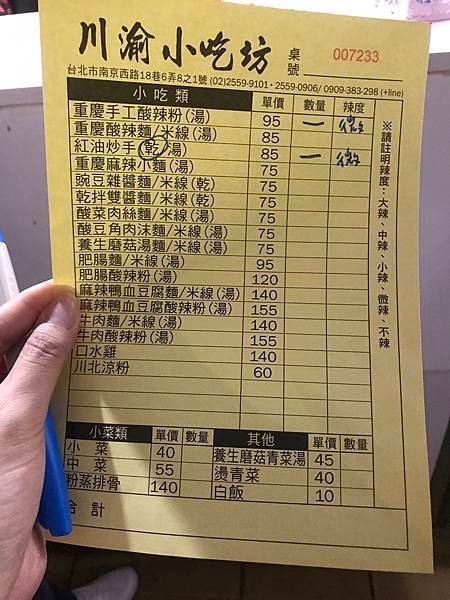 川渝小吃坊 桌號 007233
台北市南京西路18巷6弄8之1號 (02)2559-9101・2559-0906/ 0909-383-298 (+line)
小吃類 單價 數量 辣度
重慶手工酸辣粉(湯) 95 一 微
重慶酸辣麵/米線(湯) 85
紅油炒手(乾/湯) 85 一 微
重慶麻辣小麵(湯) 75
豌豆雜醬麵/米線(乾) 75
乾拌雙醬麵/米線(乾) 75
酸菜肉絲麵/米線(湯) 75
酸豆角肉沫麵/米線(湯) 75
養生蘑菇湯麵/米線(湯) 75
肥腸麵/米線(湯) 95
肥腸酸辣粉(湯) 120
麻辣鴨血豆腐麵/米線(湯) 140
麻辣鴨血豆腐酸辣粉(湯) 155
牛肉麵/米線(湯) 140
牛肉酸辣粉(湯) 155
口水雞 140
川北涼粉 60
※請註明辣度：大辣、中辣、小辣、微辣、不辣
小菜類 單價 數量 其他 單價 數量
小菜 40 養生蘑菇青菜湯 45
中菜 55 燙青菜 40
粉蒸排骨 140 白飯 10
合計